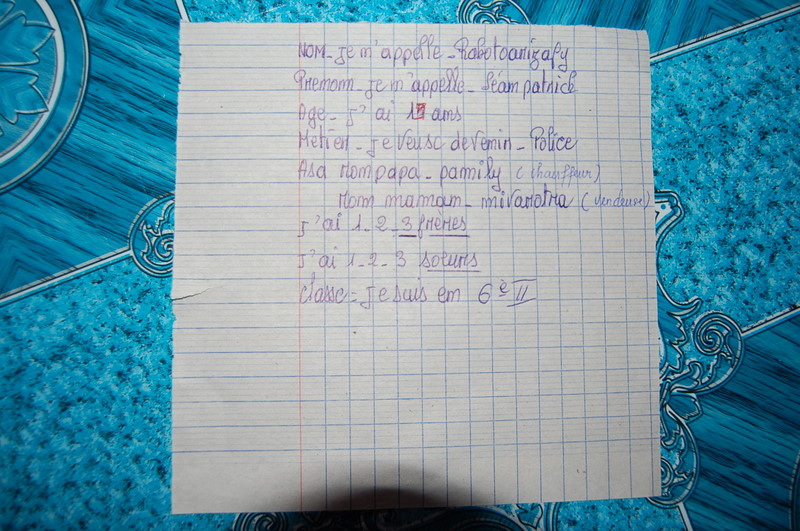 NOM - je m'appelle - Rabotoanizafy
Prenom - je m'appelle - Séam patrick
Age - j'ai 13 ans
Métier - je veusc devenir - Police
Asa Mom papa - pamily (chauffeur)
Mom maman - mivarotra (vendeuse)
j'ai 1 - 2 - 3 frères
j'ai 1 - 2 - 3 soeurs
classe = je suis em 6è II